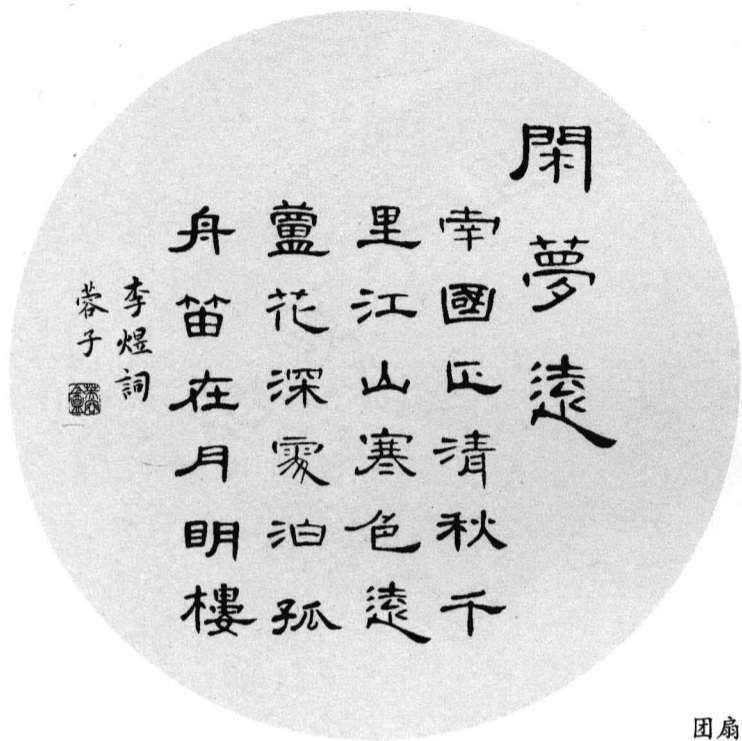 閑夢遠
南國正清秋千
里江山寒色遠
蘆花深處泊孤
舟笛在月明樓
李煜詞
蓉子
团扇